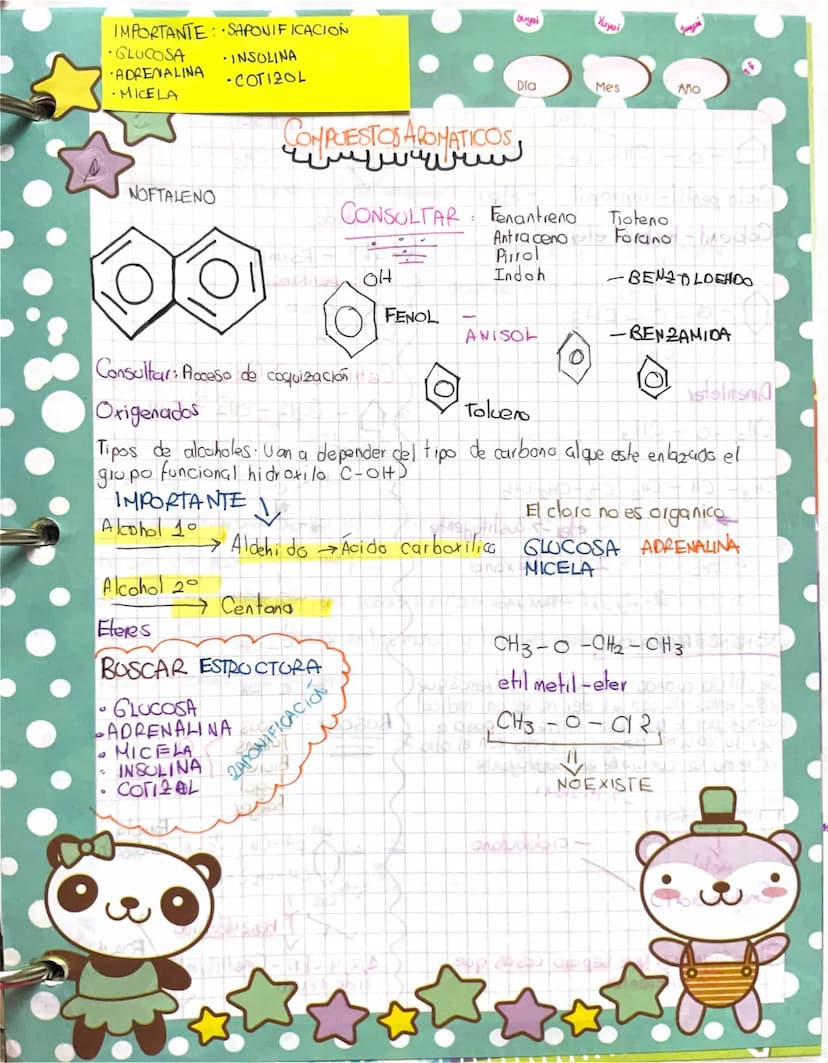 IMPORTANTE: · SAPONIFICACIÓN
· GLUCOSA · INSULINA
· ADRENALINA · COTIZOL
· MICELA
Día Mes Año
COMPUESTOS AROMATICOS
NOFTALENO
CONSULTAR: Fenantreno Tioteno
Antraceno Forano
Pirrol
Indoh
- BENZOLDEHDO
OH
FENOL
- ANISOL
- BENZAMIDA
Consultar: Acceso de coquización
Tolueno
Oxigenados
Tipos de alcoholes: Van a depender del tipo de carbono al que este enlazado el
grupo funcional hidroxilo C-OH)
IMPORTANTE
El cloro no es organico
Alcohol 1º
→ Aldehido → Ácido carboxilico
GLUCOSA ADRENALINA
MICELA
Alcohol 2º
→ Centona
Eteres
CH3-O-CH2-CH3
BUSCAR ESTRUCTURA
etil metil-eter
· GLUCOSA
· ADRENALINA
· MICELA
· INSULINA
· COTIZAL
ZAPONIFICACIÓN
CH3-O-Cl?
NO EXISTE